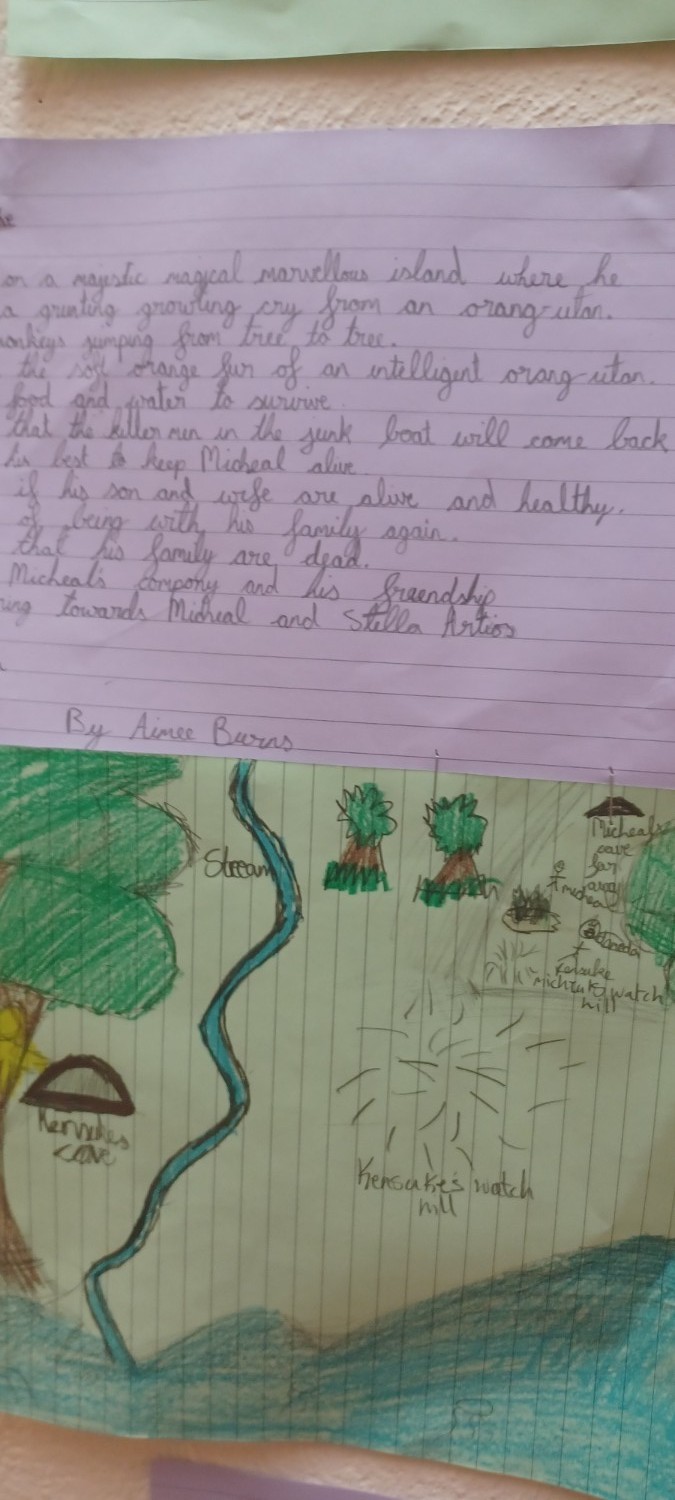 on a majestic magical marvellous island where he
a grunting growling cry from an orang-utan.
onkeys jumping from tree to tree.
the soft orange fur of an intelligent orang-utan.
food and water to survive
that the killer men in the junk boat will come back
his best to keep Micheal alive
if his son and wife are alive and healthy.
of being with his family again.
that his family are dead.
Micheal's company and his freendship
ing towards Micheal and Stella Artios
By Aimee Burns
Stream
Micheal's
cave
far
away
micheal
Kensuke
watch
hill
Kensukes
cave
Kensuke's watch
hill